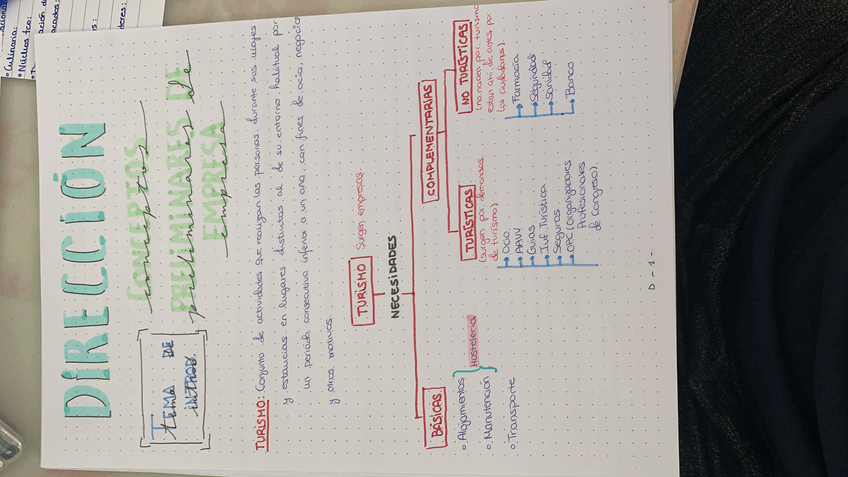 DIRECCIÓN
TEMA DE
tema
INTROD.
CONCEPTOS
conceptos
PRELIMINARES DE
preliminares de
EMPRESA
empresa
TURISMO: Conjunto de actividades que realizan las personas durante sus viajes
y estancias en lugares distintos al de su entorno habitual por
un periodo consecutivo inferior a un año, con fines de ocio, negocios
y otros motivos.
TURISMO surgen empresas.
NECESIDADES
BÁSICAS
Alojamientos
Manutención
Hostelería
Transporte
COMPLEMENTARIAS
TURÍSTICAS
(surgen por demandas
de turismo)
Ocio
AAVV
Guías
Inf. Turística
Seguros
OPC (Organizadores
Profesionales
de Congreso).
NO TURÍSTICAS
(no nacen por turismo
estan de antes por
los ciudadanos).
Farmacia
Seguridad
Sanidad
Banco
D - 1 -
Culinaria:
Núcleos